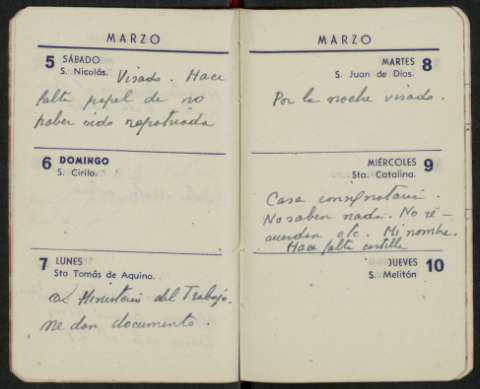 MARZO
5 SÁBADO
S. Nicolás. Visado. Hace
falta papel de no
haber sido repatriada
6 DOMINGO
S. Cirilo.
7 LUNES
Sto Tomás de Aquino.
Ministerio del Trabajo.
Me dan documento.
MARZO
MARTES 8
S. Juan de Dios.
Por la noche visado.
MIÉRCOLES 9
Sta. Catalina.
Casa consignataria.
No saben nada. No re-
cuerdan etc. Mi nombre.
Hace falta cartilla
JUEVES 10
S. Melitón